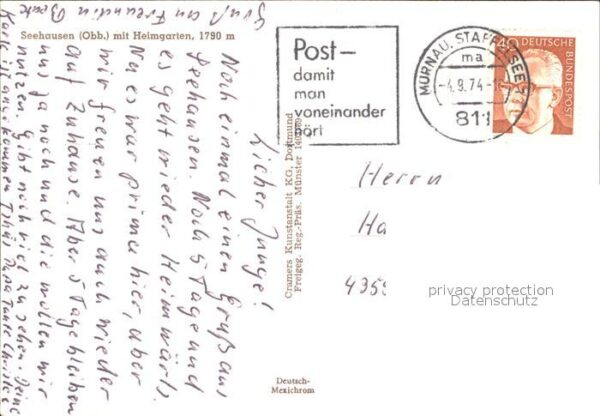 Seehausen (Obb.) mit Heimgarten, 1790 m
Post–
damit
man
voneinander
hört
MURNAU, STAFFELSEE 1
ma
-4.9.74-1
811
40 DEUTSCHE
BUNDESPOST
Lieber Junge!
Noch einmal einen Gruß aus
Seehausen. Noch 5 Tage und
es geht wieder Heimwärts.
Na es war prima hier, aber
wir freuen uns auch wieder
auf Zuhause. Aber 5 Tage bleiben
uns ja noch und die wollen wir
nutzen. Gibt noch viel zu sehen. Deine
Karte ist angekommen Tschüs Papa Tante Christel
Gruß an Freundin
Cramers Kunstanstalt KG, Dortmund
Freigeg. Reg.-Präs. Münster
Herrn
Ha
4359
privacy protection
Datenschutz
Deutsch-
Mexichrom